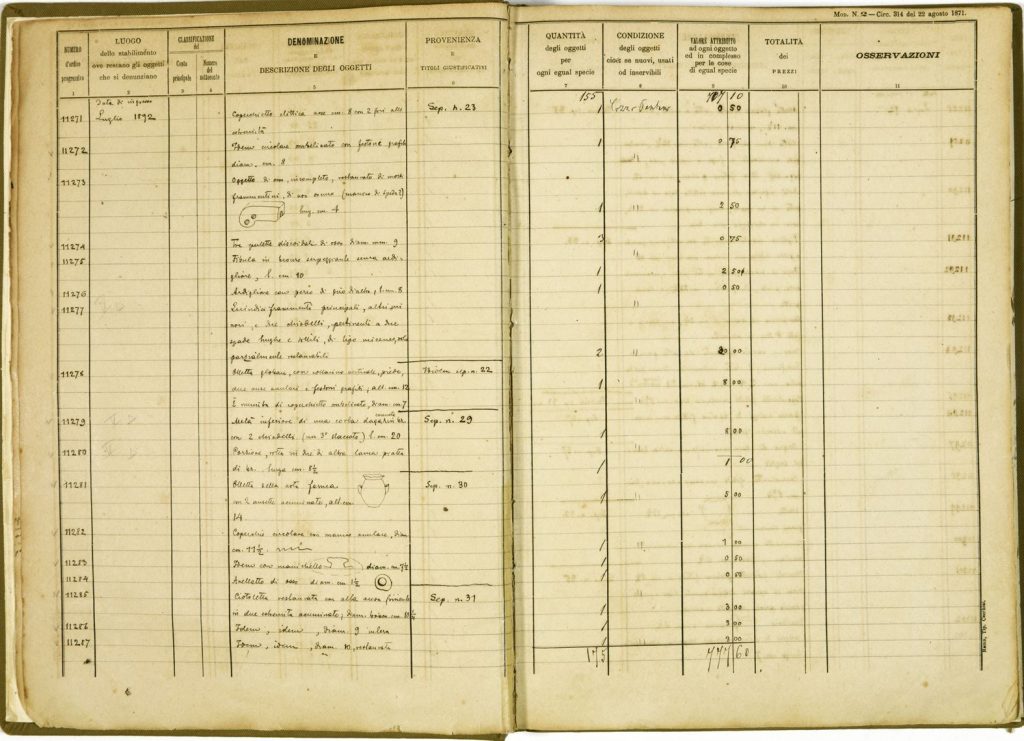 Mod. N. 2 — Circ. 314 del 22 agosto 1871.
NUMERO d'ordine progressivo
LUOGO dello stabilimento ove restano gli oggetti che si denunziano
CLASSIFICAZIONE del
Conto principale
Numero del sottoconto
DENOMINAZIONE E DESCRIZIONE DEGLI OGGETTI
PROVENIENZA E TITOLI GIUSTIFICATIVI
QUANTITÀ degli oggetti per ogni egual specie
CONDIZIONE degli oggetti cioè se nuovi, usati od inservibili
VALORE ATTRIBUITO ad ogni oggetto ed in complesso per le cose di egual specie
TOTALITÀ dei PREZZI
OSSERVAZIONI
1 2 3 4 5 6 7 8 9 10 11
Data di ingresso
Luglio 1892
155
10
11271 Coperchietto ellittico cm. 8 con 2 fori alle Sep. A. 23 1 0 50
estremità
11272 Idem circolare ombelicato con festone graffito 1 0 75
diam. cm. 8
11273 Oggetto di osso, incompleto, restaurato di molti
frammentini, di uso oscuro (manico di spada?)
lung. cm. 4 1 " 2 50
11274 Tre perlette discoidali di osso diam. mm. 9 3 " 0 75
11275 Fibula in bronzo serpeggiante senza ardi-
glione, l. cm. 10 1 " 2 50
11276 Ardiglione con giro di filo d'altra, l. cm. 8 1 0 50
11277 Quindici frammenti principali, altri mi
nori, e due chiodetti, pertinenti a due
spade lunghe e sottili, di tipo miceneo,
parzialmente restaurabili 2 " 00
11278 Olletta globare, con collarino verticale, piede, sep. n. 22
due anse anulari e festoni graffiti, alt. cm. 12 1 " 8 00
È munita di coperchietto ombelicato, diam. cm. 7
11279 Metà inferiore di una corta daga in br. Sep. n. 29
con 2 chiodetti (un 3° staccato) l. cm. 20 1 " 8 00
11280 Porzione, rotta in due di altra lama piatta
di br. lunga cm. 8½ 1 " 1 00
11281 Olletta della sola Sep. n. 30
con 2 ansette acuminate, alt. cm. 1 " 5 00
14.
11282 Coperchio circolare con manico anulare, diam.
cm. 11½. 1 " 1 00
11283 Idem con manichello diam. cm. 7½ 1 " 0 50
11284 Anelletto di osso diam. cm. 1½ 1 " 0 50
11285 Ciotoletta restaurata con alta ansa Sep. n. 31
in due estremità acuminate, diam. 1 " 3 00
11286 Idem, idem, diam. 9 intera 1 " 3 00
11287 Idem, idem, diam. 10, restaurata 1 00
175 777 60
Roma, Tip. Cecchini.